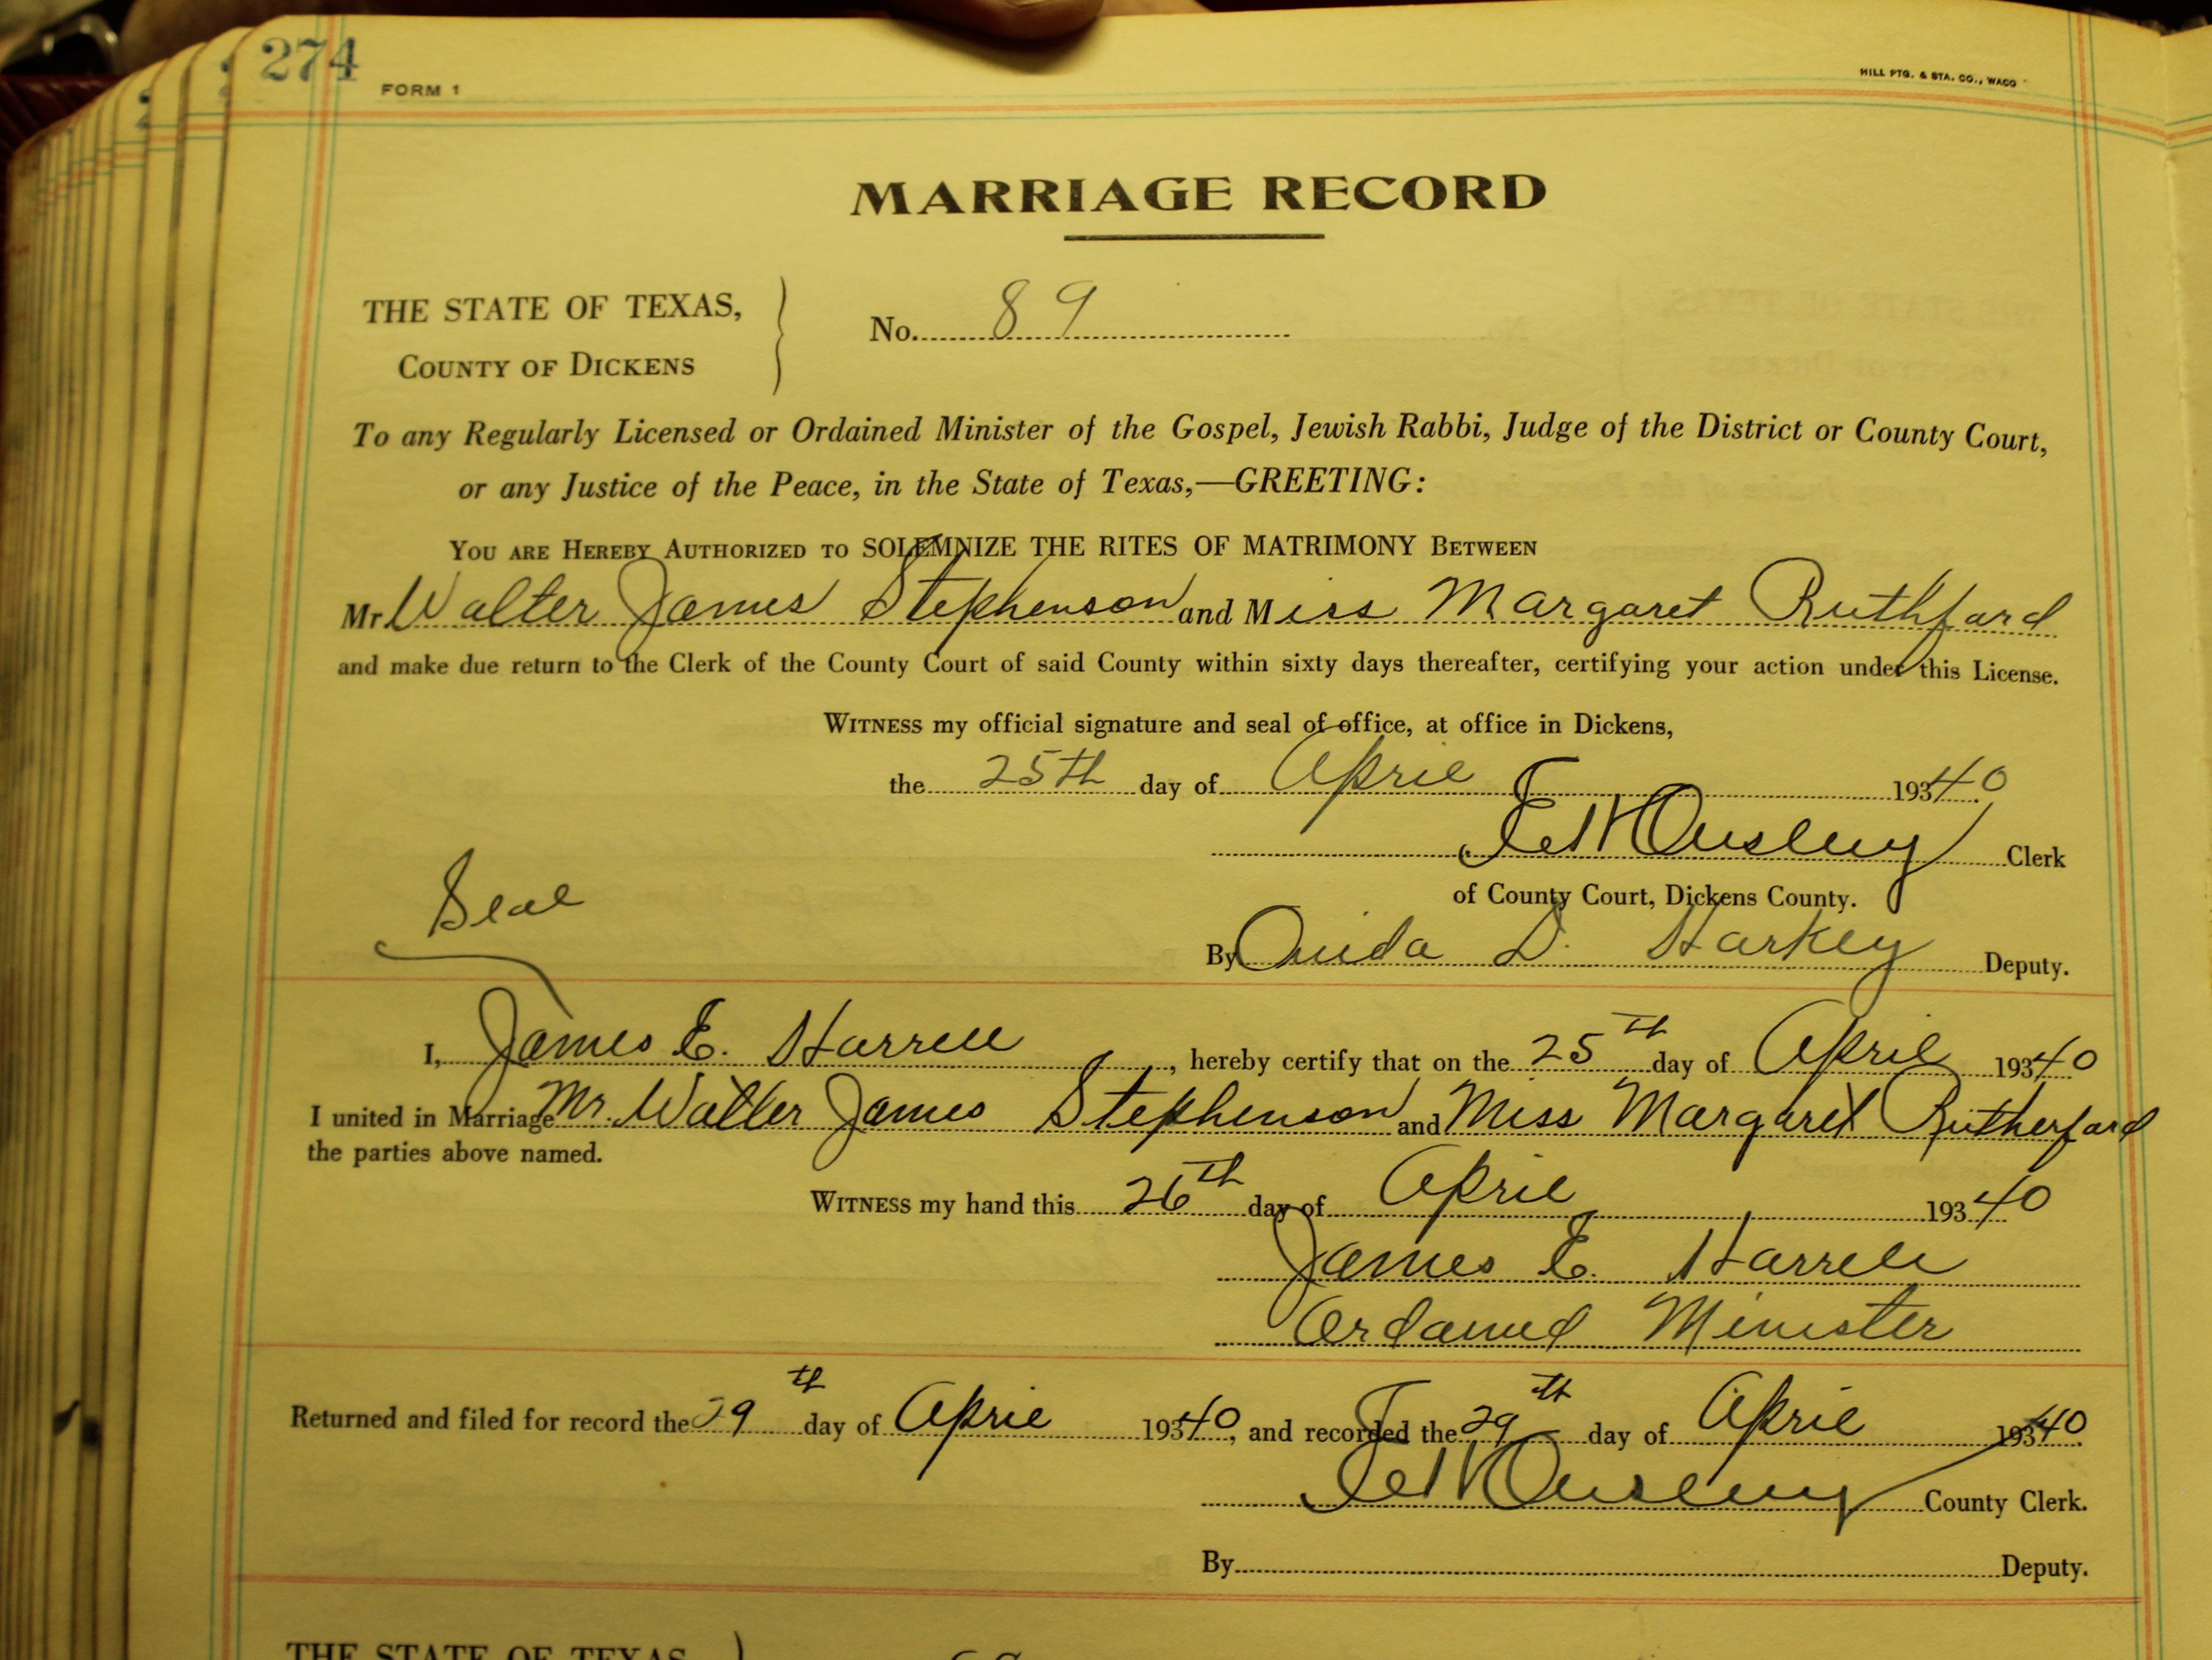 274
FORM 1
HILL PTG. & STA. CO., WACO
MARRIAGE RECORD
THE STATE OF TEXAS,
COUNTY OF DICKENS
No. 89
To any Regularly Licensed or Ordained Minister of the Gospel, Jewish Rabbi, Judge of the District or County Court,
or any Justice of the Peace, in the State of Texas,—GREETING:
YOU ARE HEREBY AUTHORIZED TO SOLEMNIZE THE RITES OF MATRIMONY BETWEEN
Mr Walter James Stephenson and Miss Margaret Ruthford
and make due return to the Clerk of the County Court of said County within sixty days thereafter, certifying your action under this License.
WITNESS my official signature and seal of office, at office in Dickens,
the 25th day of April 19340
Ousley Clerk
of County Court, Dickens County.
Seal
By Ouida D. Harkey Deputy.
I, James E. Harrell, hereby certify that on the 25th day of April 19340
I united in Marriage Mr. Walter James Stephenson and Miss Margaret Rutherford
the parties above named.
WITNESS my hand this 26th day of April 19340
James E. Harrell
Ordained Minister
Returned and filed for record the 29th day of April 19340, and recorded the 29th day of April 19340.
Ousley County Clerk.
By Deputy.
THE STATE OF TEXAS